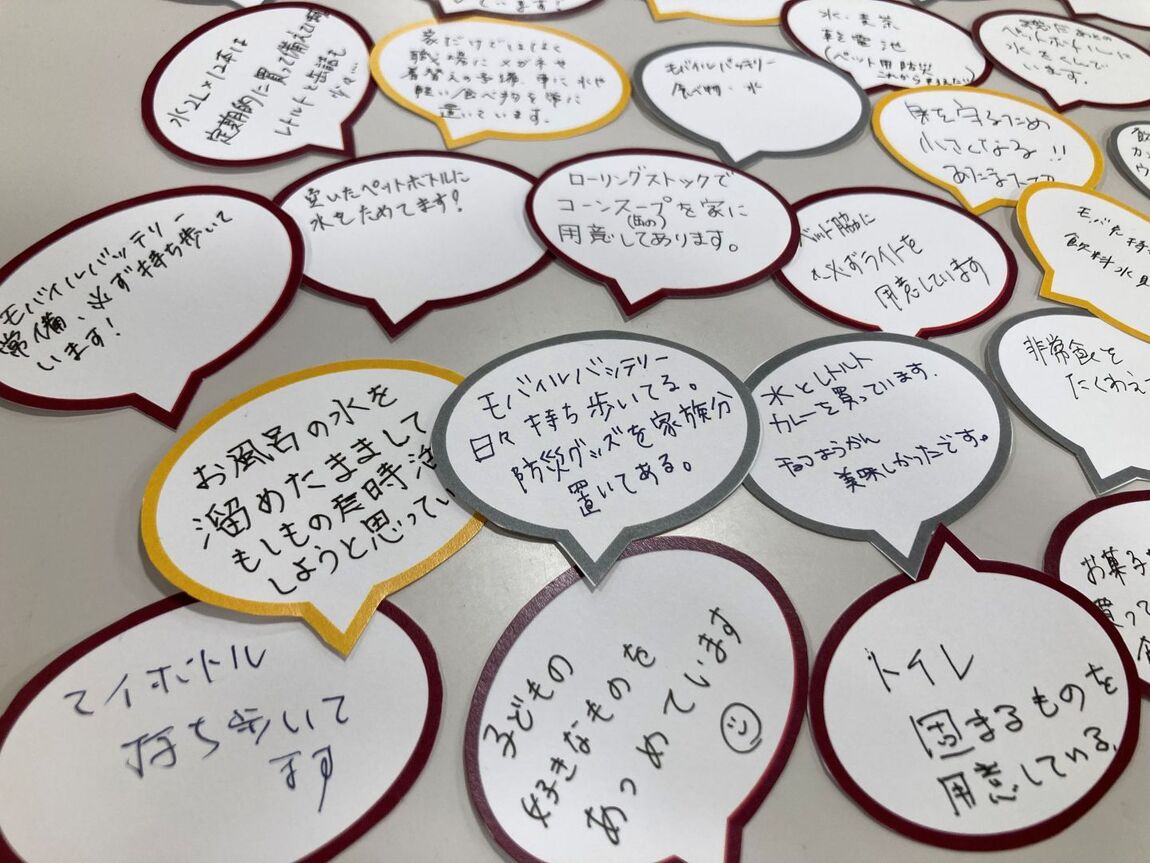 水2L×12本は
定期的に買って備えて
レトルトと缶詰も
家だけではなく
職場にメガネや
着替えの予備、車に水や
軽い食べ物を常に
置いています。
モバイルバッテリー
食べ物・水
水・麦茶
乾電池
(ペット用防災
ペットボトルに
水をくんで
います。
身を守るため
小さくなる!!
あたま
空いたペットボトルに
水をためてます!
ローリングストックで
コーンスープを家に
(缶の)
用意してあります。
ベット脇に
必ずライトを
用意しています
モバイルバッテリー
常備、必ず持ち歩いて
います!
飲料水
お風呂の水を
溜めたままして
もしもの時活
しようと思ってい
モバイルバッテリー
日々持ち歩いてる。
防災グッズを家族分
置いてある。
水とレトルト
カレーを買っています.
チョコようかん
美味しかったです。
非常食を
たくわえ
お菓子
買って
マイボトル
持ち歩いて
ます
子どもの
好きなものを
あつめています
トイレ
固まるものを
用意している。